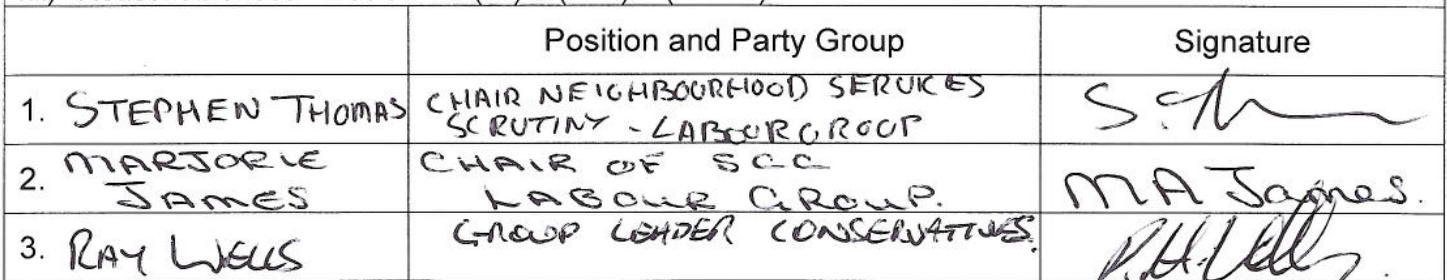 Position and Party Group Signature
1. STEPHEN THOMAS CHAIR NEIGHBOURHOOD SERVICES
SCRUTINY - LABOUR GROUP
2. MARJORIE CHAIR OF SCC
JAMES LABOUR GROUP. MA James.
3. RAY WELLS GROUP LEADER CONSERVATIVES.